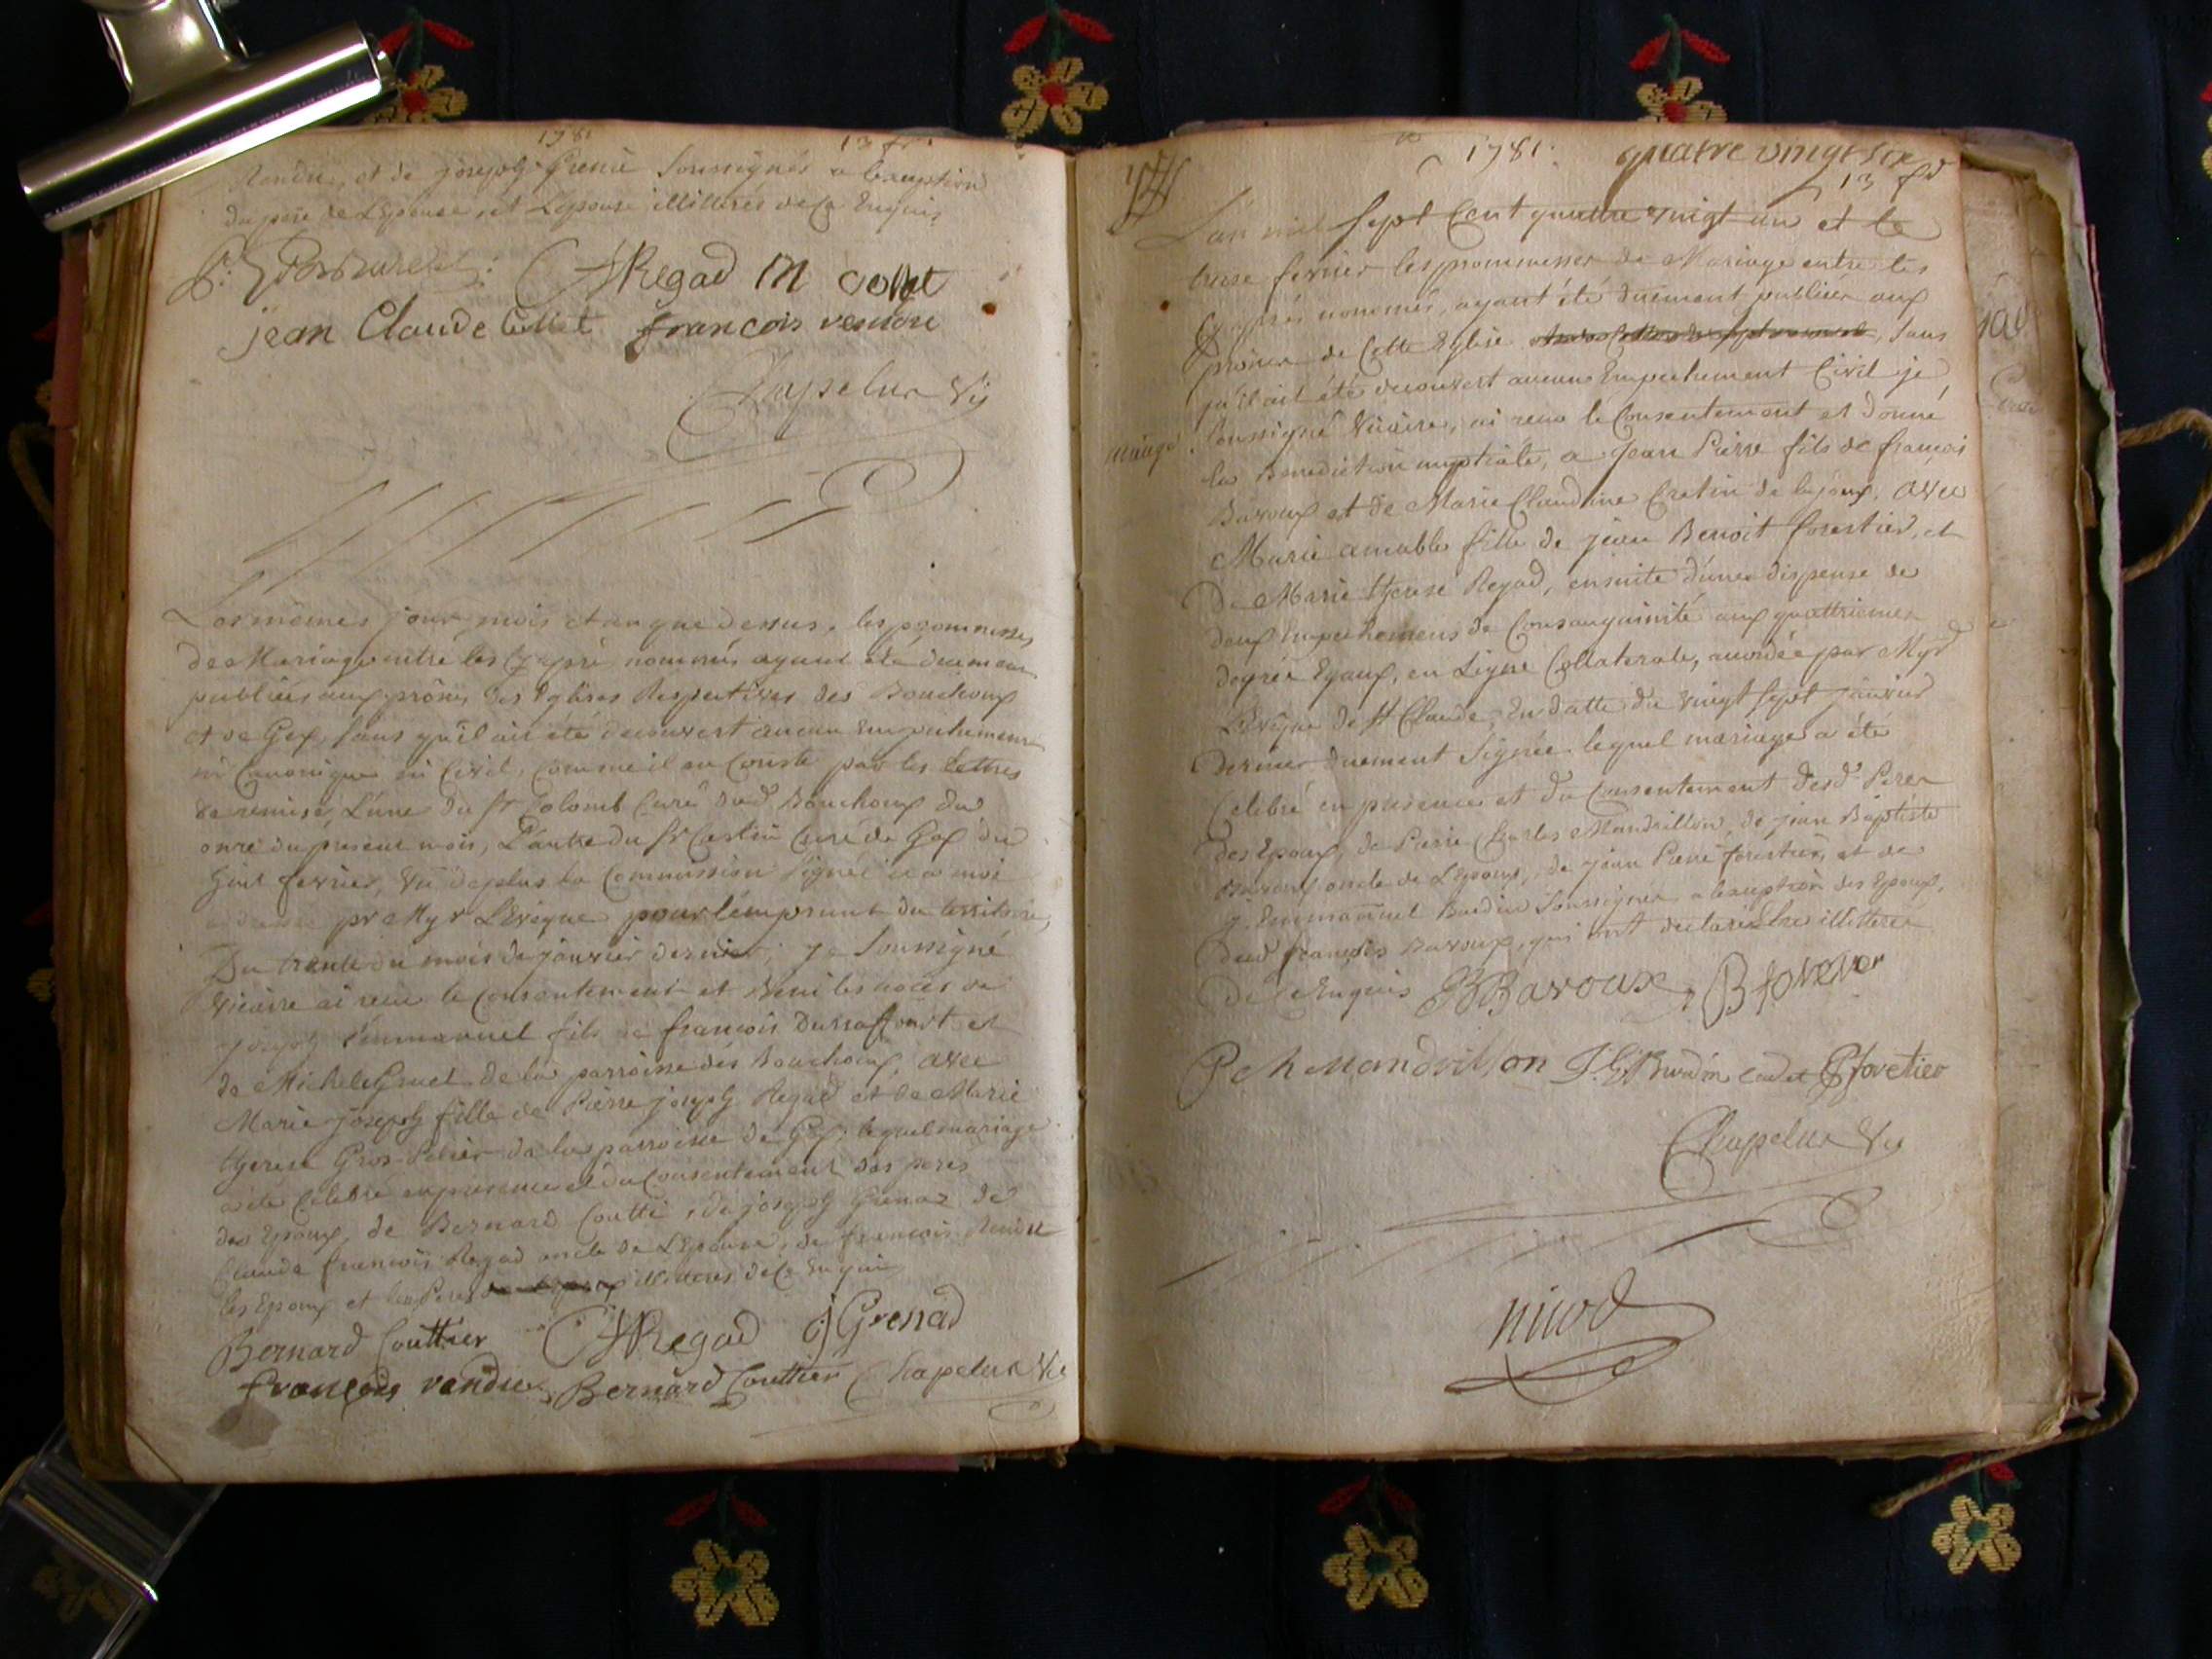 1781
13 fr
Rendu, et de joseph Grenié Soussignés a lexeption
du pere de L'Epouse, et L'epouse illitterés de ce Enquis
CfRegad M Collet
jean Claude Collet francois rendu
Chapelux Vic
Les mêmes jour, mois et an que dessus, les prommesses
de Mariage entre les cy après nommés ayant été duement
publiées aux prônes des Eglises Respectives des Bouchoux
et de Gex, sans qu'il ait été decouvert aucun Empechement
ni Canonique ni Civil, comme il en Conste par les Lettres
de remise, L'une du Sr Colomb Curé dud. Bouchoux du
onze du present mois, L'autre du Sr Castin Curé de Gex du
huit fevrier, Vû deplus la Commission signée et a moi
pr Mgr L'Evêque pour l'emprunt du territoire,
Du trente du mois de janvier dernier; je Soussigné
Vicaire ai recu le Consentement et beni les noces de
joseph Emmanuel fils de francois Durraffourt et
de Michele Gruel de la parroisse des Bouchoux, avec
Marie joseph fille de Pierre joseph Regad et de Marie
therese Gros-Pelier de la parroisse de Gex; lequel mariage
a été Celebré en presence et du Consentement des peres
des Epoux, de Bernard Coutté, de joseph Grenaz de
Claude francois Regad oncle de L'Epouse, de francois Rendu
les Epoux et les Peres illitterés de ce Enquis
Bernard Couttier CfRegad j Grenad
francois randu Bernard Couttier Chapelux Vic
1781. quatre vingt six
13 fr
L'an mil sept Cent quattre vingt un et le
treise fevrier les prommesses de Mariage entre les
Cy après nommés, ayant été duement publiées aux
prônes de Cette Eglise, sans
qu'il ait été decouvert aucun Empechement Civil je
mariage Soussigné Vicaire, ai recu le Consentement et donné
la Benediction nuptiale, a Jean Pierre fils de françois
Bavoux et de Marie Claudine Cretin de la joux, avec
Marie amable fille de jean Benoit forestier, et
De Marie therese Regad, ensuite d'une dispense de
deux Empechemens de Consanguinité aux quattrieme
degrés Egaux, en Ligne Collaterale, accordée par Mgr
L'Evêque de St Claude, En datte du vingt sept janvier
dernier duement signée. lequel mariage a été
Celebré en presence et du Consentement desd. Peres
des Epoux, de Pierre Charles Mandrillon, de jean Baptiste
Bavoux oncle de L'Epoux, de jean Pierre forestier, et de
j. Emmanuel Burdin Soussignés a lexeption des Epoux,
dud françois Bavoux, qui ont declaré Etre illitterés
De ce Enquis JBBavoux, JB fo
P ch Mandrillon J.E Burdin cadet jp foretier
Chapelux Vic
nicod